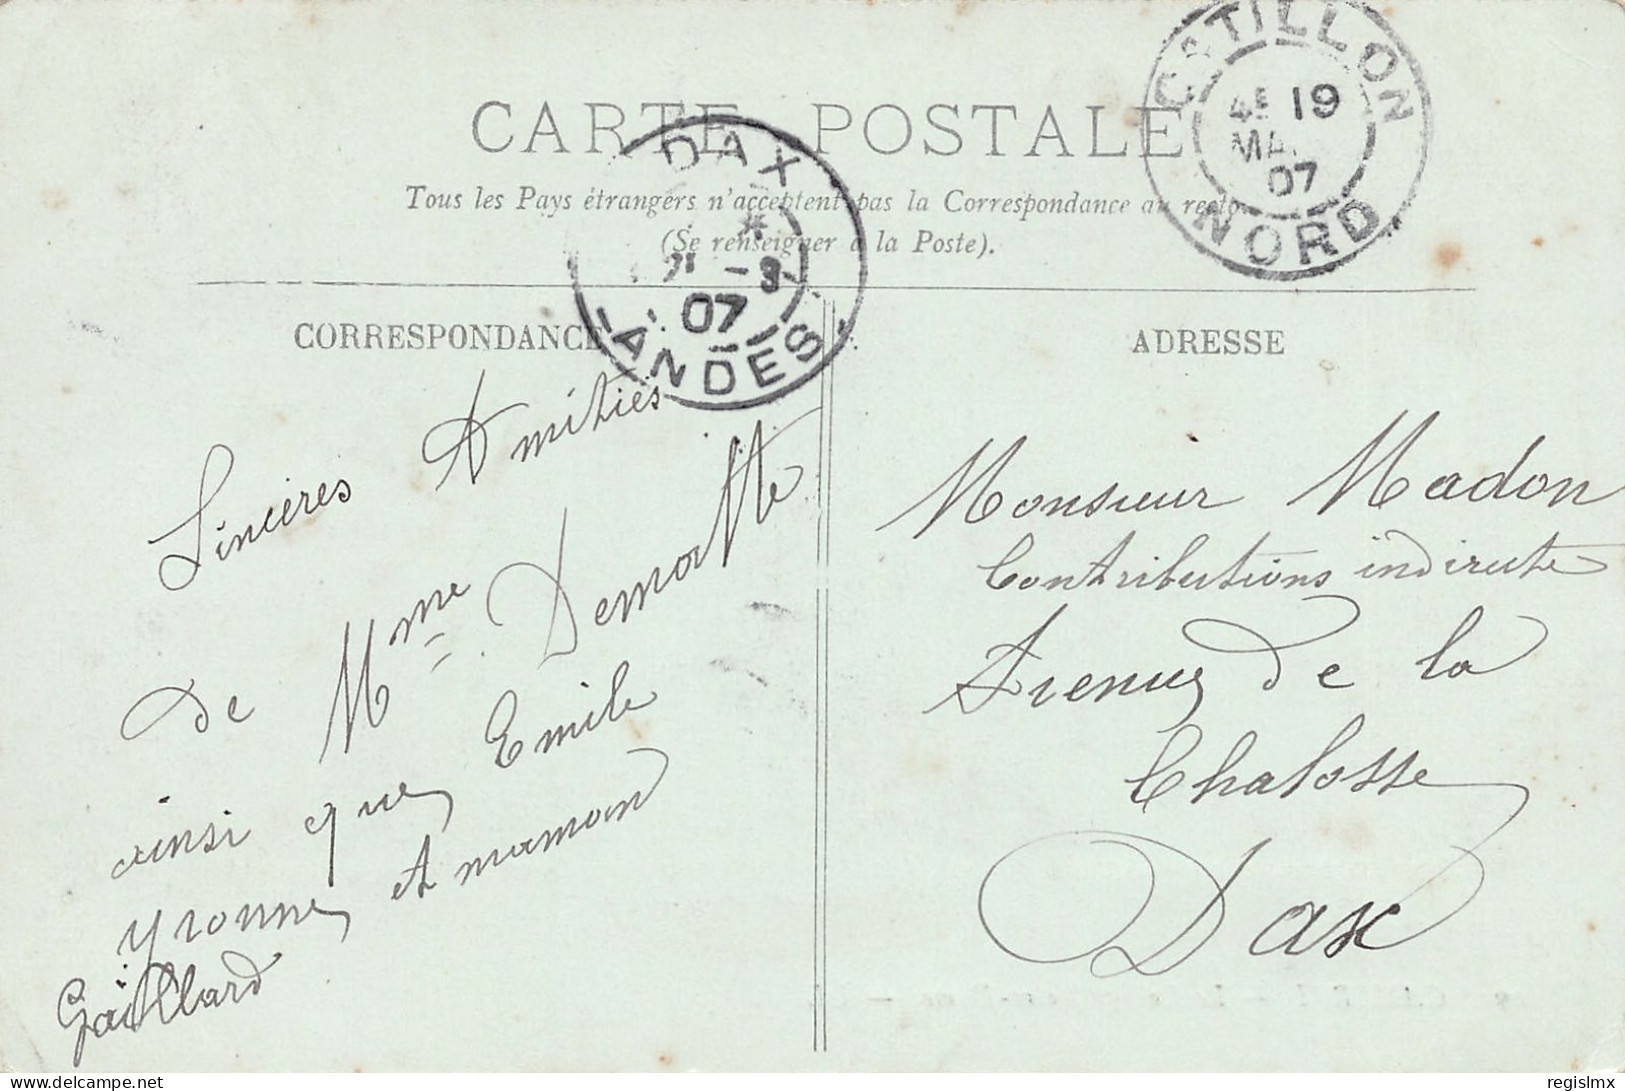 CARTE POSTALE
Tous les Pays étrangers n'acceptent pas la Correspondance au recto
(Se renseigner à la Poste).
CATILLON
4E 19
MA
07
NORD
DAX
*
21 -3
07
LANDES
CORRESPONDANCE
Sincères Amitiés
de Mme Dematte
ainsi que Emile
Yvonne et maman
Gaillard
ADRESSE
Monsieur Madon
Contributions indirecte
Avenue de la
Chalosse
Dax
delcampe.net
regislmx